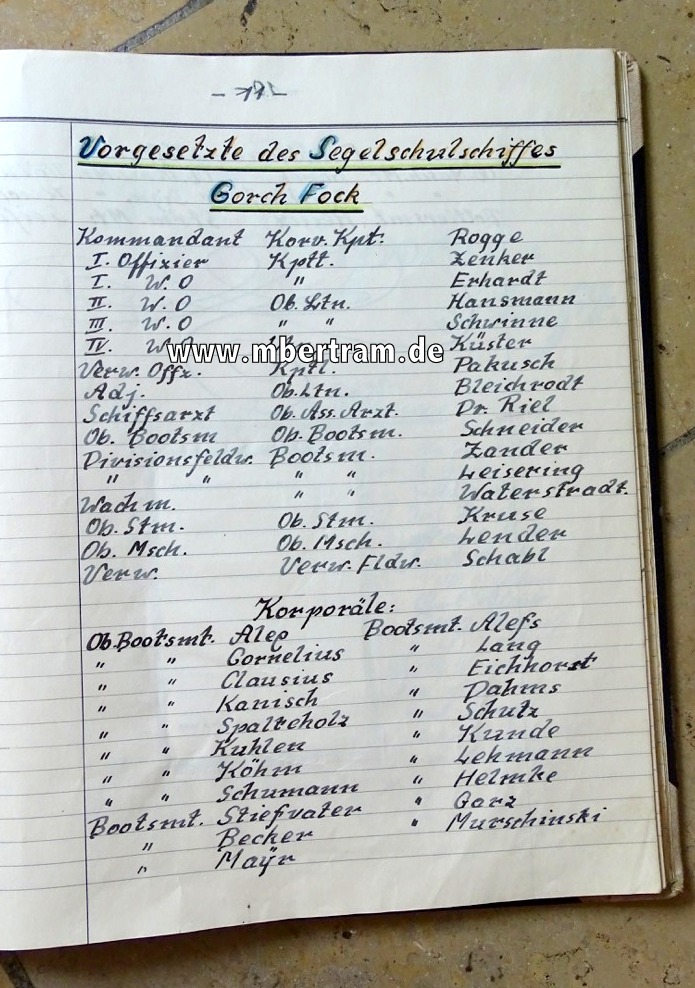 Vorgesetzte des Segelschulschiffes
Gorch Fock
Kommandant Korv. Kpt. Rogge
I. Offizier Kptt. Zenker
I. W.O " Erhardt
II. W.O Ob. Ltn. Hansmann
III. W.O " " Schwinne
IV. Küster
www.mbertram.de
Verw. Offz. Kptl. Pakusch
Adj. Ob. Ltn. Bleichrodt
Schiffsarzt Ob. Ass. Arzt. Dr. Riel
Ob. Bootsm Ob. Bootsm. Schneider
Divisionsfeldw. Bootsm. Zander
" " " " Leisering
Wachm. " " Waterstradt.
Ob. Stm. Ob. Stm. Kruse
Ob. Msch. Ob. Msch. Lender
Verw. Verw. Fldw. Schabl
Korporäle:
Ob. Bootsmt. Alep Bootsmt. Alefs
" " Cornelius " Lang
" " Clausius " Eichhorst
" " Kanisch " Dahms
" " Spalteholz " Schutz
" " Kuhlen " Kunde
" " Köhm " Lehmann
" " Schumann " Helmke
Bootsmt. Stiefvater " Garz
" Becker " Murschinski
" Maÿr